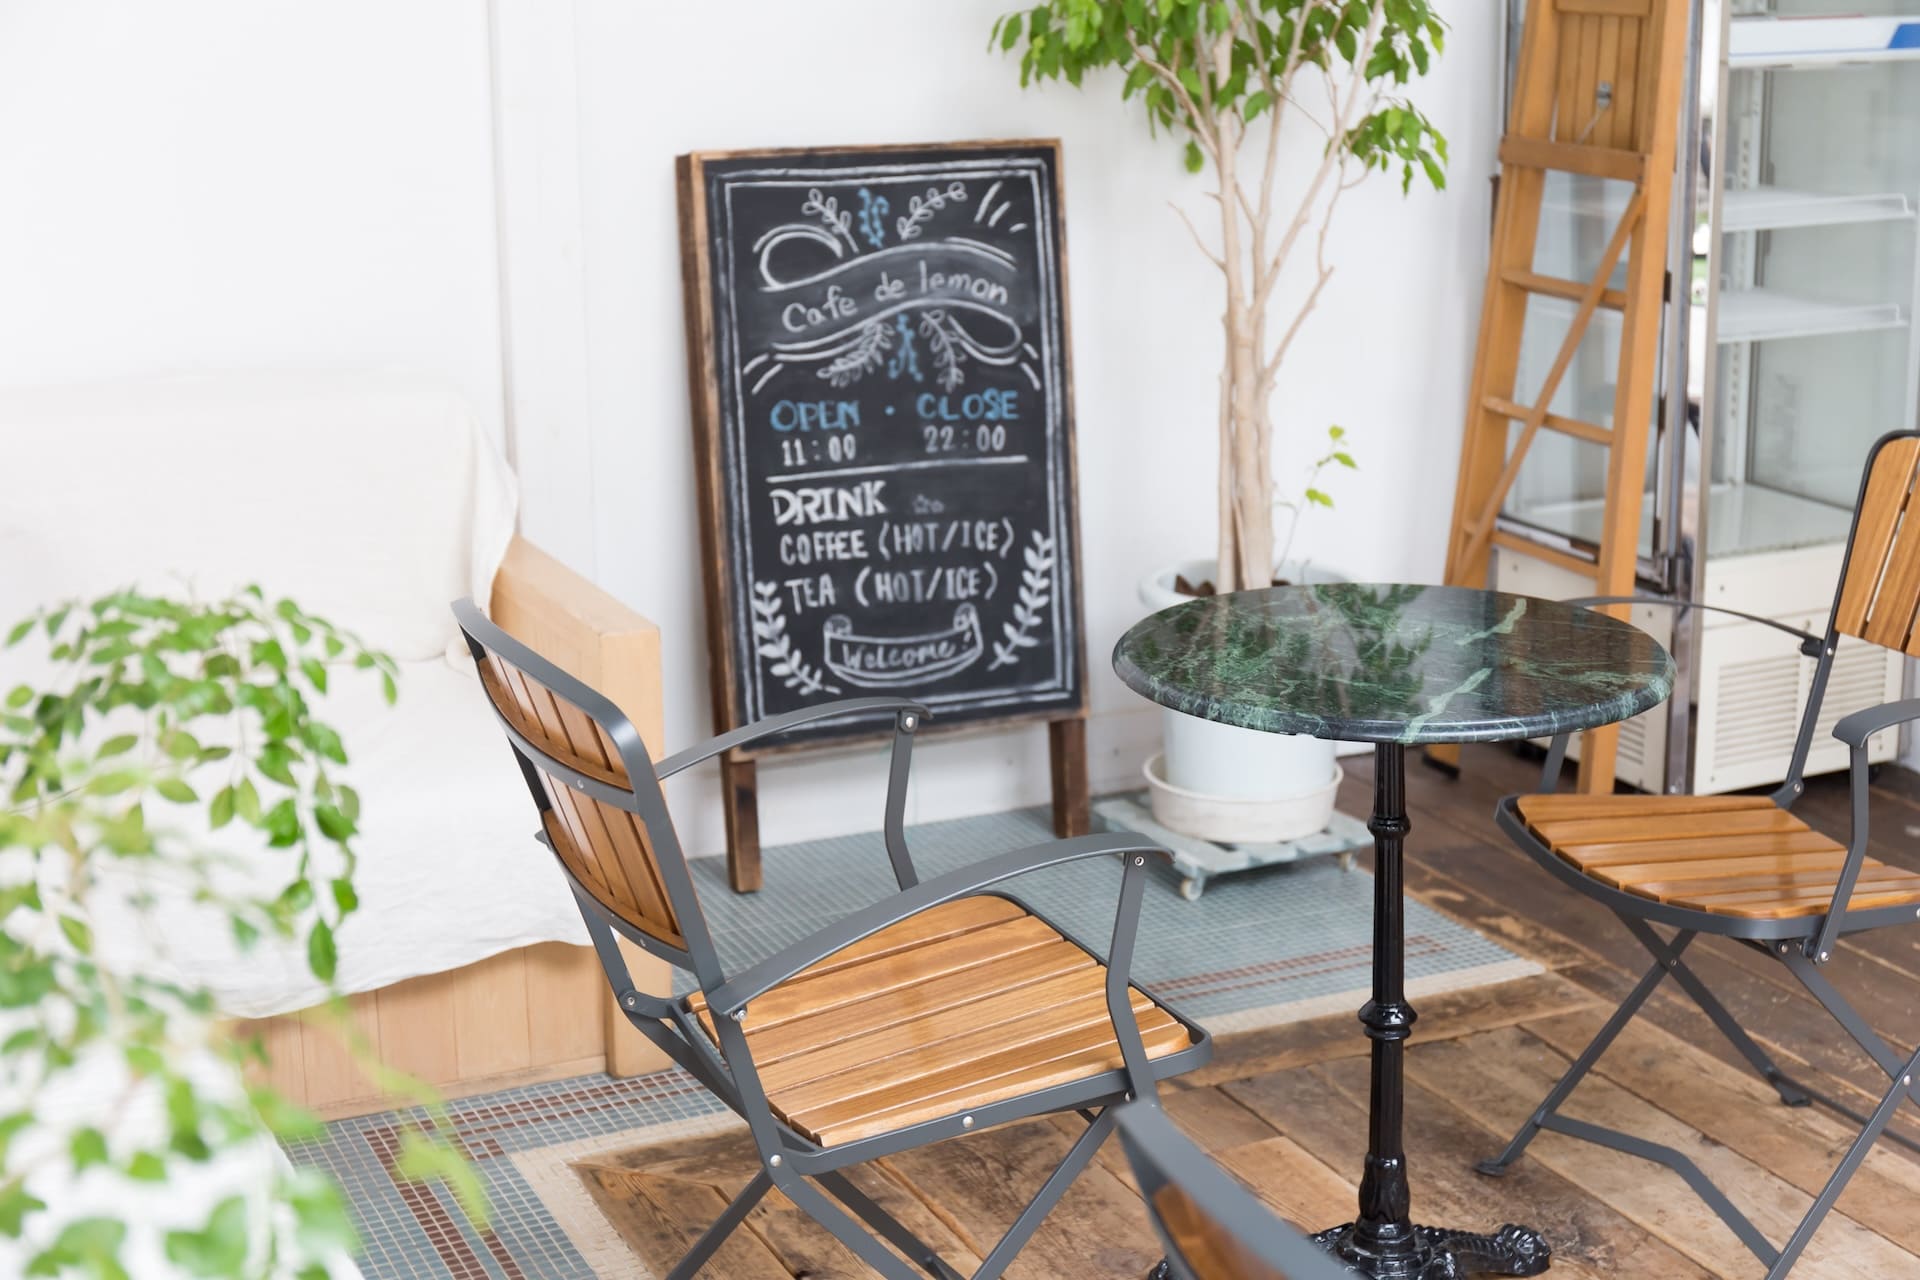 Cafe de lemon
OPEN · CLOSE
11:00 22:00
DRINK
COFFEE (HOT/ICE)
TEA (HOT/ICE)
Welcome!